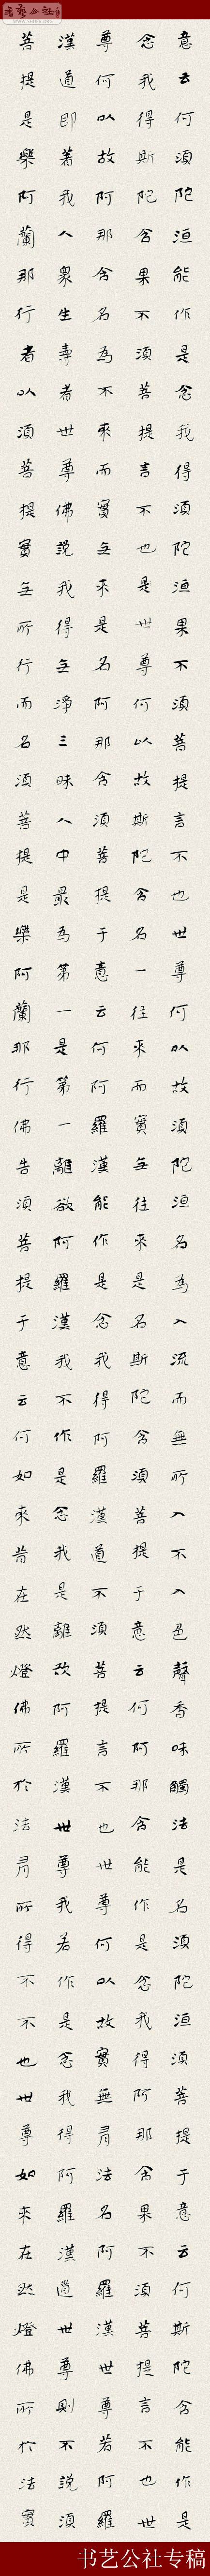 意云何須陀洹能作是念我得須陀洹果不須菩提言不也世尊何以故須陀洹名為入流而無所入不入色聲香味觸法是名須陀洹須菩提于意云何斯陀含能作是
念我得斯陀含果不須菩提言不也是世尊何以故斯陀含名一往來而實无往來是名斯陀含須菩提于意云何阿那含能作是念我得阿那含果不須菩提言不也世
尊何以故阿那含名為不來而實无來是名阿那含須菩提于意云何阿羅漢能作是念我得阿羅漢道不須菩提言不也世尊何以故實無有法名阿羅漢世尊若阿羅
漢道即著我人眾生壽者世尊佛說我得无淨三昧人中最為第一是第一離欲阿羅漢我不作是念我是離欲阿羅漢世尊我若作是念我得阿羅漢道世尊則不說須
菩提是樂阿蘭那行者以須菩提實无所行而名須菩提是樂阿蘭那行佛告須菩提于意云何如來昔在然燈佛所於法有所得不不也世尊如來在然燈佛所於法實
书艺公社专稿